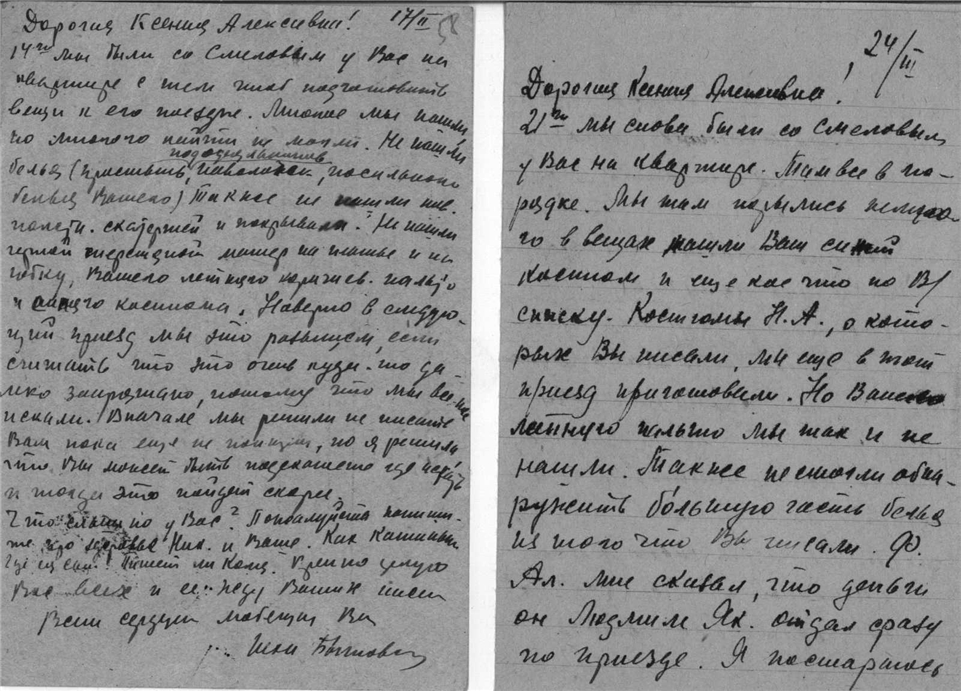 Дорогая Ксения Алексевна! 17/II 58
14го мы были со Смеловым у Вас на
квартире с тем чтоб подготовить
вещи к его поездке. Многое мы нашли
но многого найти не могли. Не нашли
пододеяльников
белья (простынь, наволочек, носильного
белья Вашего) Также не нашли
скатертей и покрывала? Не нашли
черной шерстяной матер на платье и на
юбку, Вашего летнего коричнев. пальто
и синего костюма. Наверно в следую-
щий приезд мы это разыщем, если
считать что это очень куда-то да-
леко запрятано, потому что мы все
искали. Вначале мы решили не писать
Вам пока еще не поищем, но я решила
что Вы может быть подскажете где искать
и тогда это пойдет скорее.
Что слышно у Вас? Пожалуйста напиши-
те про здоровье Ник. и Ваше. Как Катины
Где их сын? Пишет ли Крепко целую
Вас всех и жду Ваших писем
Всем сердцем любящая Вас
24/III
Дорогая Ксения Алексевна!
21го мы снова были со Смеловым
у Вас на квартире. Там все в по-
рядке. Мы там порылись немно-
го в вещах нашли Ваш синий
костюм и еще кое что по В/
списку. Костюмы Н.А., о кото-
рых Вы писали, мы еще в тот
приезд приготовили. Но Вашего
летнего пальто мы так и не
нашли. Также не смогли обна-
ружить большую часть белья
из того что Вы писали. Ф.
Ал. мне сказал, что деньги
он Людмиле Як. отдал сразу
по приезде. Я постараюсь